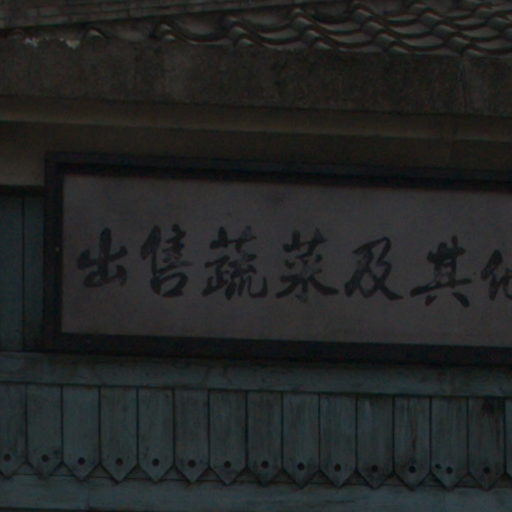 出售蔬菜及其他